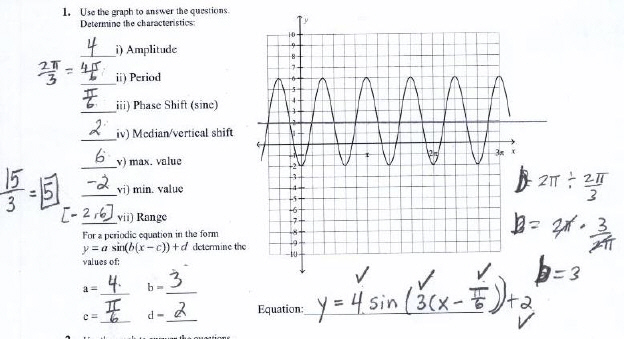 1. Use the graph to answer the questions.
Determine the characteristics:
4 i) Amplitude
2π/3 = 4π/6 ii) Period
π/6 iii) Phase Shift (sine)
2 iv) Median/vertical shift
6 v) max. value
15/3 = 5
-2 vi) min. value
[-2,6] vii) Range
For a periodic equation in the form
y = a sin(b(x − c)) + d determine the
values of:
a = 4 b = 3
c = π/6 d = 2
y
10
π 2π 3π x
b = 2π ÷ 2π/3
b = 2π · 3/2π
b = 3
Equation: y = 4 sin (3(x - π/6)) + 2